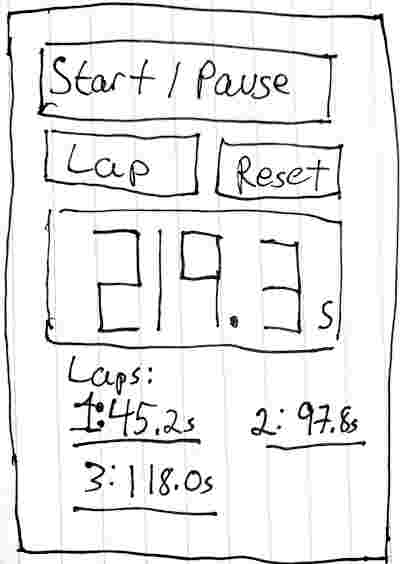 Start / Pause
Lap
Reset
219.3 s
Laps:
1:45.2s
2:97.8s
3:118.0s